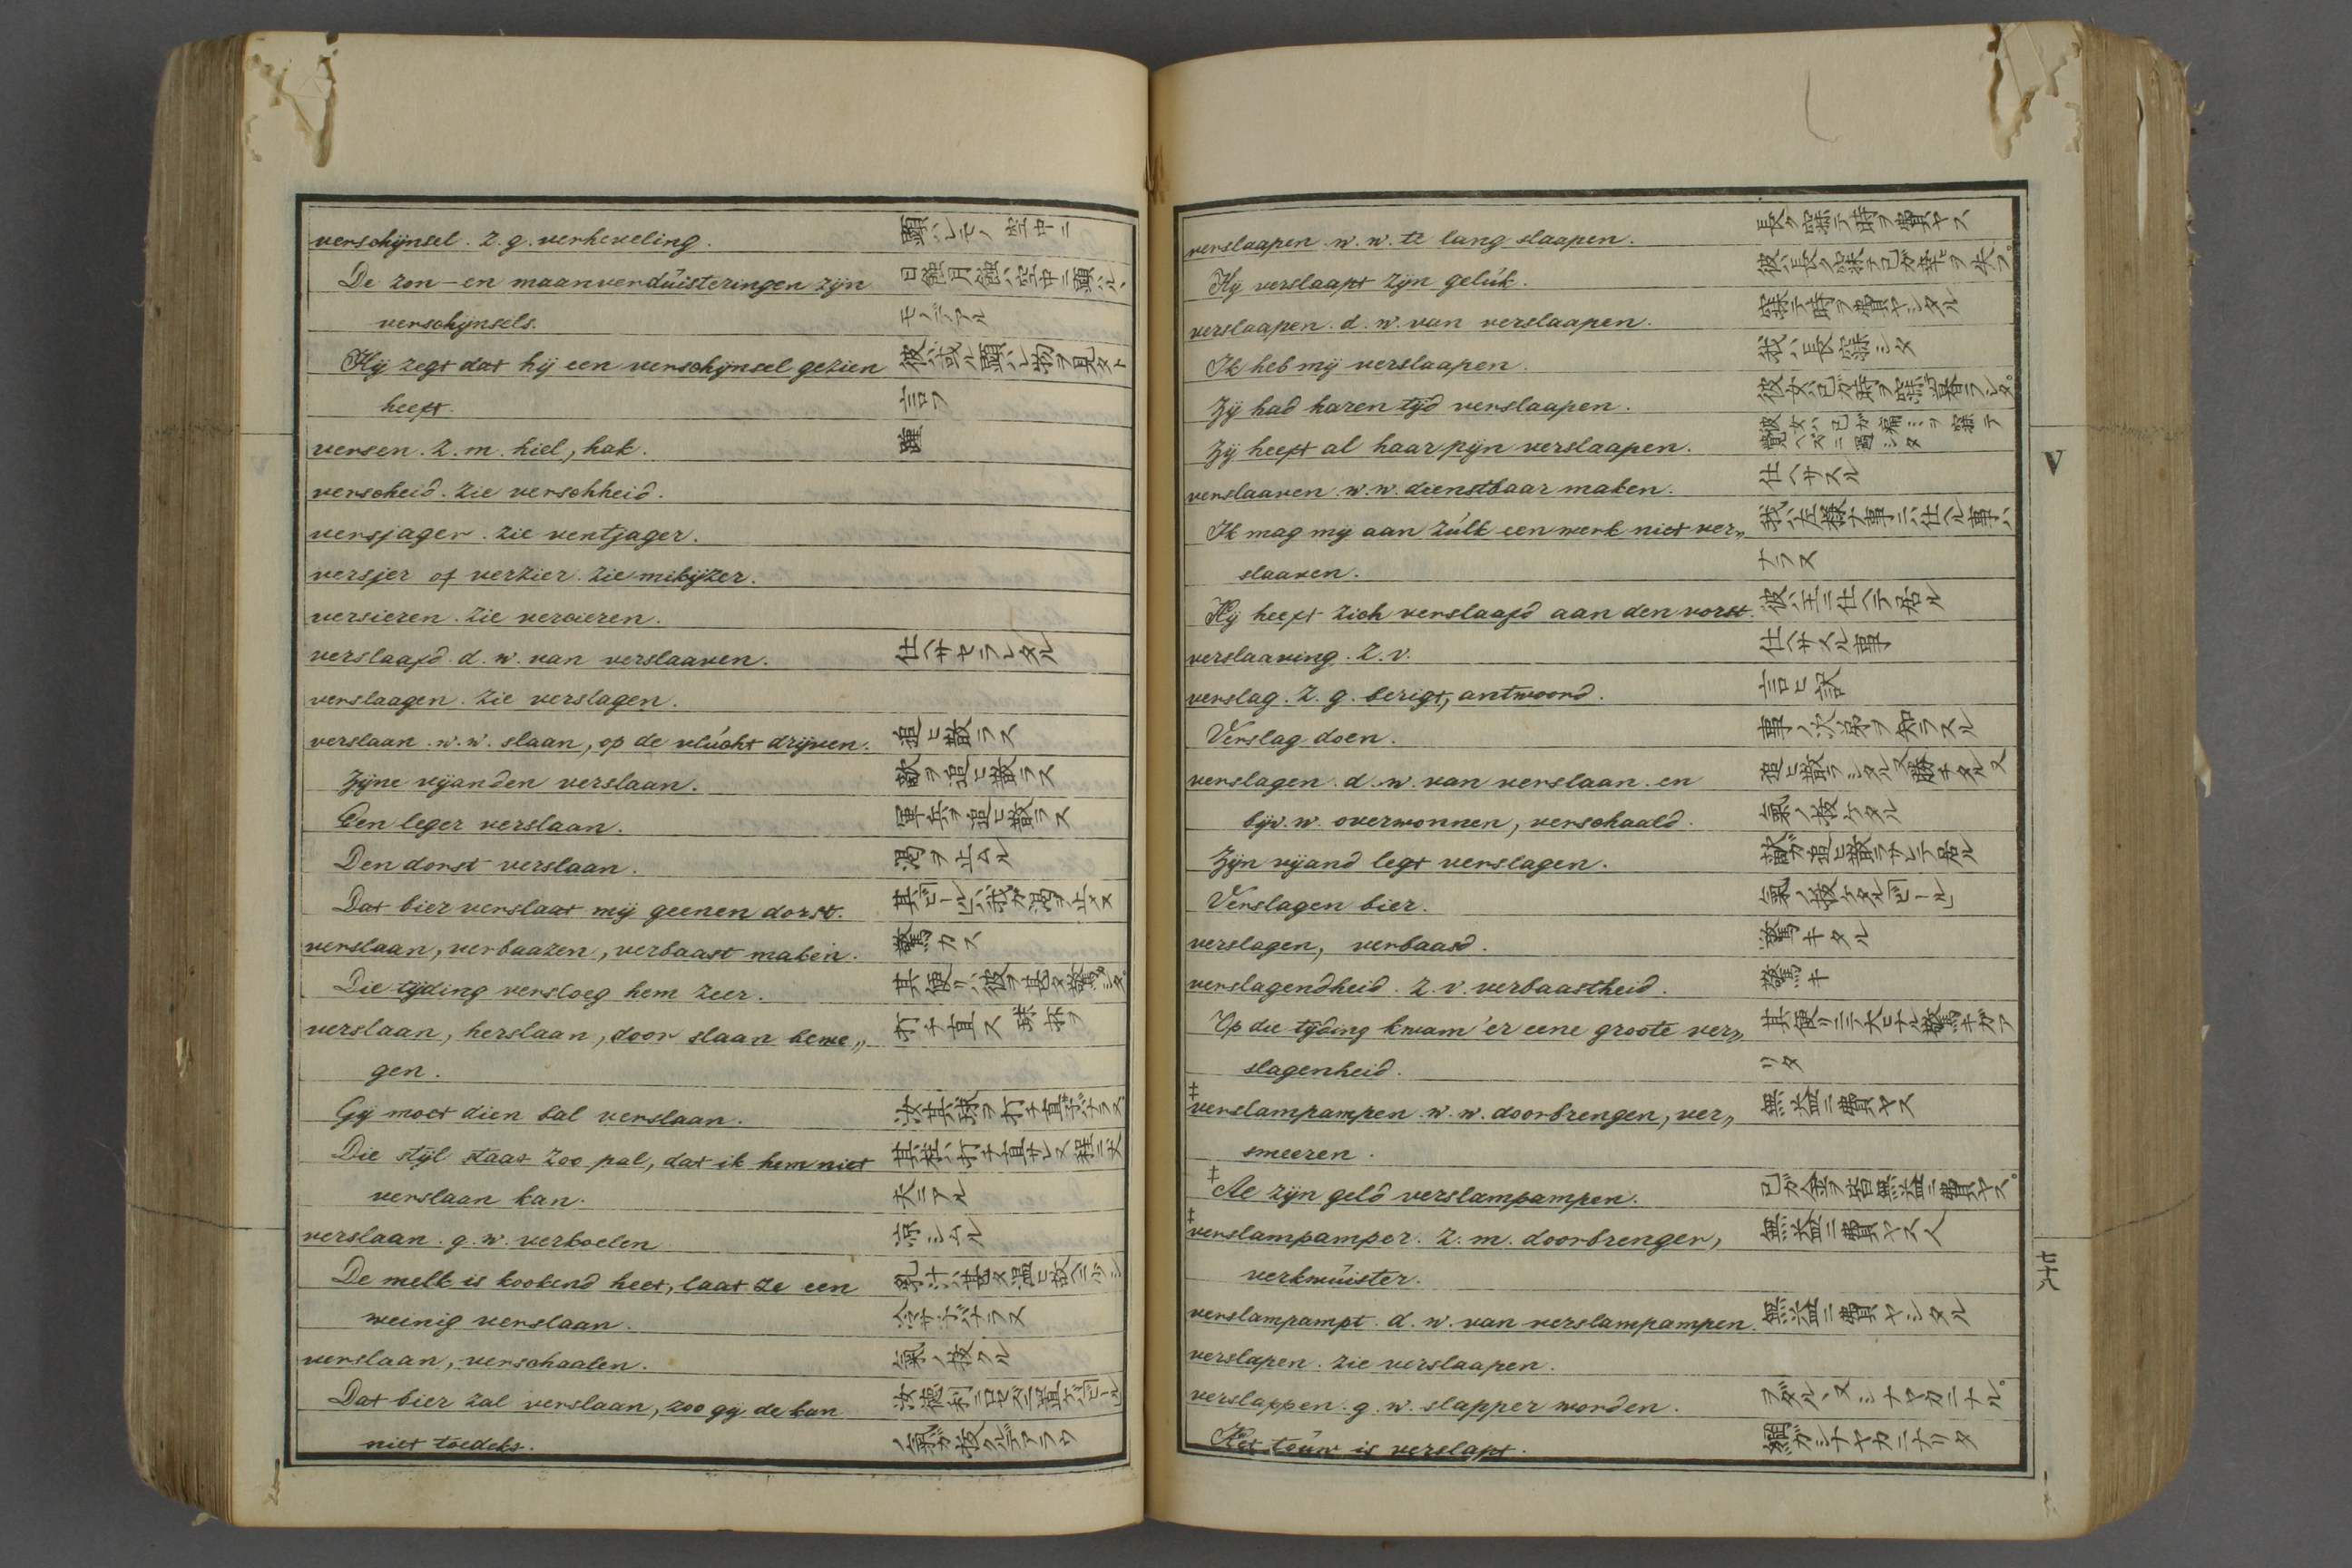 verschijnsel. z. g. verheveling. 顕ハレモノ 空中ニ
De zon-en maanverdúisteringen zijn 日蝕月蝕ハ空中ニ顕ハルヽ
verschijnsels. モノデアル
Hij zegt dat hij een verschijnsel gezien 彼ハ或ル顕ハレ物ヲ見タト
heeft. 言フ
versen. z. m. hiel, hak. 踵
verscheid. zie verschheid.
versjager. zie ventjager.
versjer of verzier. zie mikijzer.
versieren. zie vercieren.
verslaafd. d. w. van verslaaven. 仕ヘサセラレタル
verslaagen. zie verslagen.
verslaan. w. w. slaan, op de vlúcht drijven. 追ヒ散ラス
Zijne vijanden verslaan. 敵ヲ追ヒ散ラス
Een leger verslaan. 軍兵ヲ追ヒ散ラス
Den dorst verslaan. 渇ヲ止ムル
Dat bier verslaat mij geenen dorst. 其「ビール」ハ我ガ渇ヲ止メヌ
verslaan, verbaazen, verbaast maken. 驚カス
Die tijding versloeg hem zeer. 其便リハ彼ヲ甚タ驚カシタ。
verslaan, herslaan, door slaan bewe„ 打チ直ス 球杯ヲ
gen.
Gij moet dien bal verslaan. 汝其球ヲ打チ直サ子バナラヌ
Die stijl staat zoo pal, dat ik hem niet 其柱ハ打チ直サレヌ程ニ丈
verslaan kan. 夫ニアル
verslaan. g. w. verkoelen 凉シムル
De melk is kookend heet, laat ze een 乳汁ハ甚タ温ヒ故ヘニ少シ
weinig verslaan. 冷サ子バナラヌ
verslaan, verschaalen. 氣ノ抜クル
Dat bier zal verslaan, zoo gij de kan
niet toedekt. ノ氣ガ抜クルデアラウ
verslaapen. w. w. te lang slaapen. 長ク寐テ時ヲ費ヤス
Hij verslaapt zijn gelúk. 彼ハ長ク寐テ己ガ幸ヒヲ失フ。
verslaapen. d. w. van verslaapen. 寐テ時ヲ費ヤシタル
Ik heb mij verslaapen. 我ハ長寐シタ
Zij had haren tijd verslaapen. 彼女ハ己ガ時ヲ寐暮ラシタ。
Zij heeft al haar pijn verslaapen. 彼女ハ己ガ痛ミヲ寐テ覚ヘズニ過シタ
verslaaven. w. w. dienstbaar maken. 仕ヘサスル
Ik mag mij aan zúlk een werk niet ver„ 我ハ左様ナ事ニハ仕ヘル事ハ
slaaven. ナラヌ
Hij heeft zich verslaafd aan den vorst. 彼ハ王ニ仕ヘテ居ル
verslaaving. z. v. 仕ヘサスル事
verslag. z. g. berigt, antwoord. 言ヒ訳
Verslag doen. 事ノ次第ヲ知ラスル
verslagen. d. w. van verslaan. en 追ヒ散ラシタル又驚キタル又
bijv. w. overwonnen, verschaald. 氣ノ抜ケタル
Zijn vijand legt verslagen. 敵ガ追ヒ散ラサレテ居ル
Verslagen bier. 氣ノ抜ケタル「ビール」
verslagen, verbaasd. 驚キタル
verslagendheid. z. v. verbaastheid. 驚キ
Op die tijding kwam 'er eene groote ver„ 其便リニテ大ヒナル驚キガア
slagenheid. リタ
‡verslampampen. w. w. doorbrengen, ver„ 無益ニ費ヤス
smeeren.
‡Al zijn geld verslampampen. 己ガ金ヲ皆無益ニ費ヤス。
‡verslampamper. z. m. doorbrenger, 無益ニ費ヤス人
verkwúister.
verslampampt. d. w. van verslampampen. 無益ニ費ヤシタル
verslapen. zie verslaapen.
verslappen. g. w. slapper worden. ヲダルヽ又シナヤカニナル。
Het toúw is verslapt. 綱ガシナヤカニナリタ
V